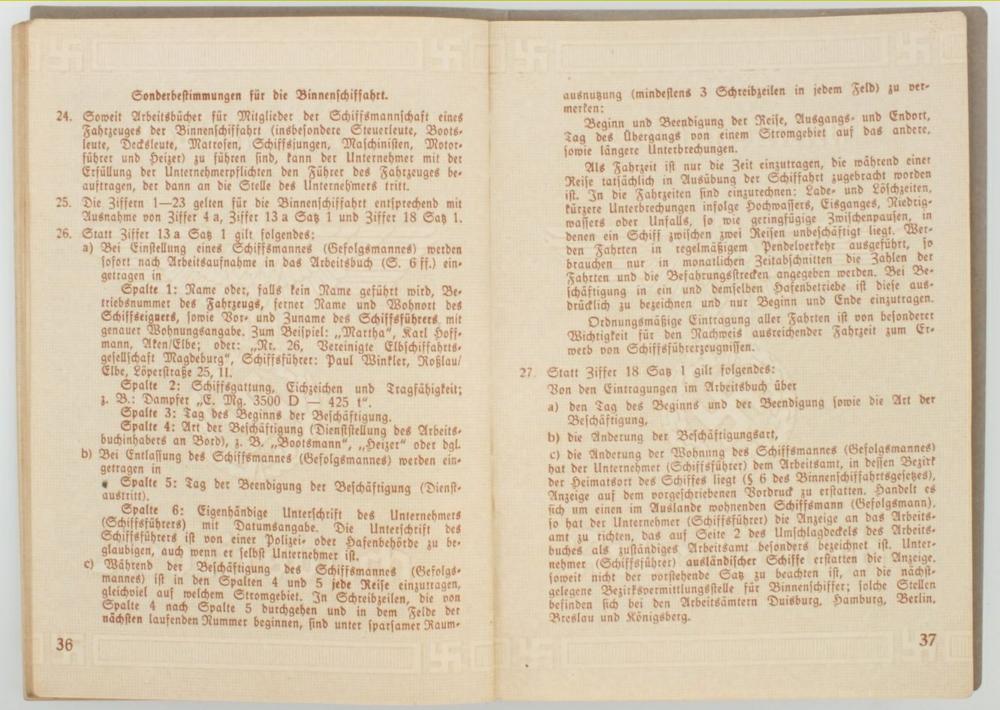 Sonderbestimmungen für die Binnenschiffahrt.
24. Soweit Arbeitsbücher für Mitglieder der Schiffsmannschaft eines
Fahrzeuges der Binnenschiffahrt (insbesondere Steuerleute, Boots-
leute, Decksleute, Matrosen, Schiffsjungen, Maschinisten, Motor-
führer und Heizer) zu führen sind, kann der Unternehmer mit der
Erfüllung der Unternehmerpflichten den Führer des Fahrzeuges be-
auftragen, der dann an die Stelle des Unternehmers tritt.
25. Die Ziffern 1—23 gelten für die Binnenschiffahrt entsprechend mit
Ausnahme von Ziffer 4a, Ziffer 13a Satz 1 und Ziffer 18 Satz 1.
26. Statt Ziffer 13a Satz 1 gilt folgendes:
a) Bei Einstellung eines Schiffsmannes (Gefolgsmannes) werden
sofort nach Arbeitsaufnahme in das Arbeitsbuch (S. 6 ff.) ein-
getragen in
Spalte 1: Name oder, falls kein Name geführt wird, Be-
triebsnummer des Fahrzeugs, ferner Name und Wohnort des
Schiffseigners, sowie Vor- und Zuname des Schiffsführers mit
genauer Wohnungsangabe. Zum Beispiel: „Martha“, Karl Hoff-
mann, Aken/Elbe; oder: „Nr. 26, Vereinigte Elbschiffahrts-
gesellschaft Magdeburg“, Schiffsführer: Paul Winkler, Roßlau/
Elbe, Löperstraße 25, 11.
Spalte 2: Schiffsgattung, Eichzeichen und Tragfähigkeit;
z. B.: Dampfer „E. Mg. 3500 D — 425 t“.
Spalte 3: Tag des Beginns der Beschäftigung.
Spalte 4: Art der Beschäftigung (Dienststellung des Arbeits-
buchinhabers an Bord), z. B. „Bootsmann“, „Heizer“ oder dgl.
b) Bei Entlassung des Schiffsmannes (Gefolgsmannes) werden ein-
getragen in
Spalte 5: Tag der Beendigung der Beschäftigung (Dienst-
austritt).
Spalte 6: Eigenhändige Unterschrift des Unternehmers
(Schiffsführers) mit Datumsangabe. Die Unterschrift des
Schiffsführers ist von einer Polizei- oder Hafenbehörde zu be-
glaubigen, auch wenn er selbst Unternehmer ist.
c) Während der Beschäftigung des Schiffsmannes (Gefolgs-
mannes) ist in den Spalten 4 und 5 jede Reise einzutragen,
gleichviel auf welchem Stromgebiet. In Schreibzeilen, die von
Spalte 4 nach Spalte 5 durchgehen und in dem Felde der
nächsten laufenden Nummer beginnen, sind unter sparsamer Raum-
36
ausnutzung (mindestens 3 Schreibzeilen in jedem Feld) zu ver-
merken:
Beginn und Beendigung der Reise, Ausgangs- und Endort,
Tag des Übergangs von einem Stromgebiet auf das andere,
sowie längere Unterbrechungen.
Als Fahrzeit ist nur die Zeit einzutragen, die während einer
Reise tatsächlich in Ausübung der Schiffahrt zugebracht worden
ist. In die Fahrzeiten sind einzurechnen: Lade- und Löschzeiten,
kürzere Unterbrechungen infolge Hochwassers, Eisganges, Niedrig-
wassers oder Unfalls, so wie geringfügige Zwischenpausen, in
denen ein Schiff zwischen zwei Reisen unbeschäftigt liegt. Wer-
den Fahrten in regelmäßigem Pendelverkehr ausgeführt, so
brauchen nur in monatlichen Zeitabschnitten die Zahlen der
Fahrten und die Befahrungsstrecken angegeben werden. Bei Be-
schäftigung in ein und demselben Hafenbetriebe ist diese aus-
drücklich zu bezeichnen und nur Beginn und Ende einzutragen.
Ordnungsmäßige Eintragung aller Fahrten ist von besonderer
Wichtigkeit für den Nachweis ausreichender Fahrzeit zum Er-
werb von Schiffsführerzeugnissen.
27. Statt Ziffer 18 Satz 1 gilt folgendes:
Von den Eintragungen im Arbeitsbuch über
a) den Tag des Beginns und der Beendigung sowie die Art der
Beschäftigung,
b) die Änderung der Beschäftigungsart,
c) die Änderung der Wohnung des Schiffsmannes (Gefolgsmannes)
hat der Unternehmer (Schiffsführer) dem Arbeitsamt, in dessen Bezirk
der Heimatsort des Schiffes liegt (§ 6 des Binnenschiffahrtsgesetzes),
Anzeige auf dem vorgeschriebenen Vordruck zu erstatten. Handelt es
sich um einen im Auslande wohnenden Schiffsmann (Gefolgsmann),
so hat der Unternehmer (Schiffsführer) die Anzeige an das Arbeits-
amt zu richten, das auf Seite 2 des Umschlagdeckels des Arbeits-
buches als zuständiges Arbeitsamt besonders bezeichnet ist. Unter-
nehmer (Schiffsführer) ausländischer Schiffe erstatten die Anzeige,
soweit nicht der vorstehende Satz zu beachten ist, an die nächst-
gelegene Bezirksvermittlungsstelle für Binnenschiffer; solche Stellen
befinden sich bei den Arbeitsämtern Duisburg, Hamburg, Berlin,
Breslau und Königsberg.
37